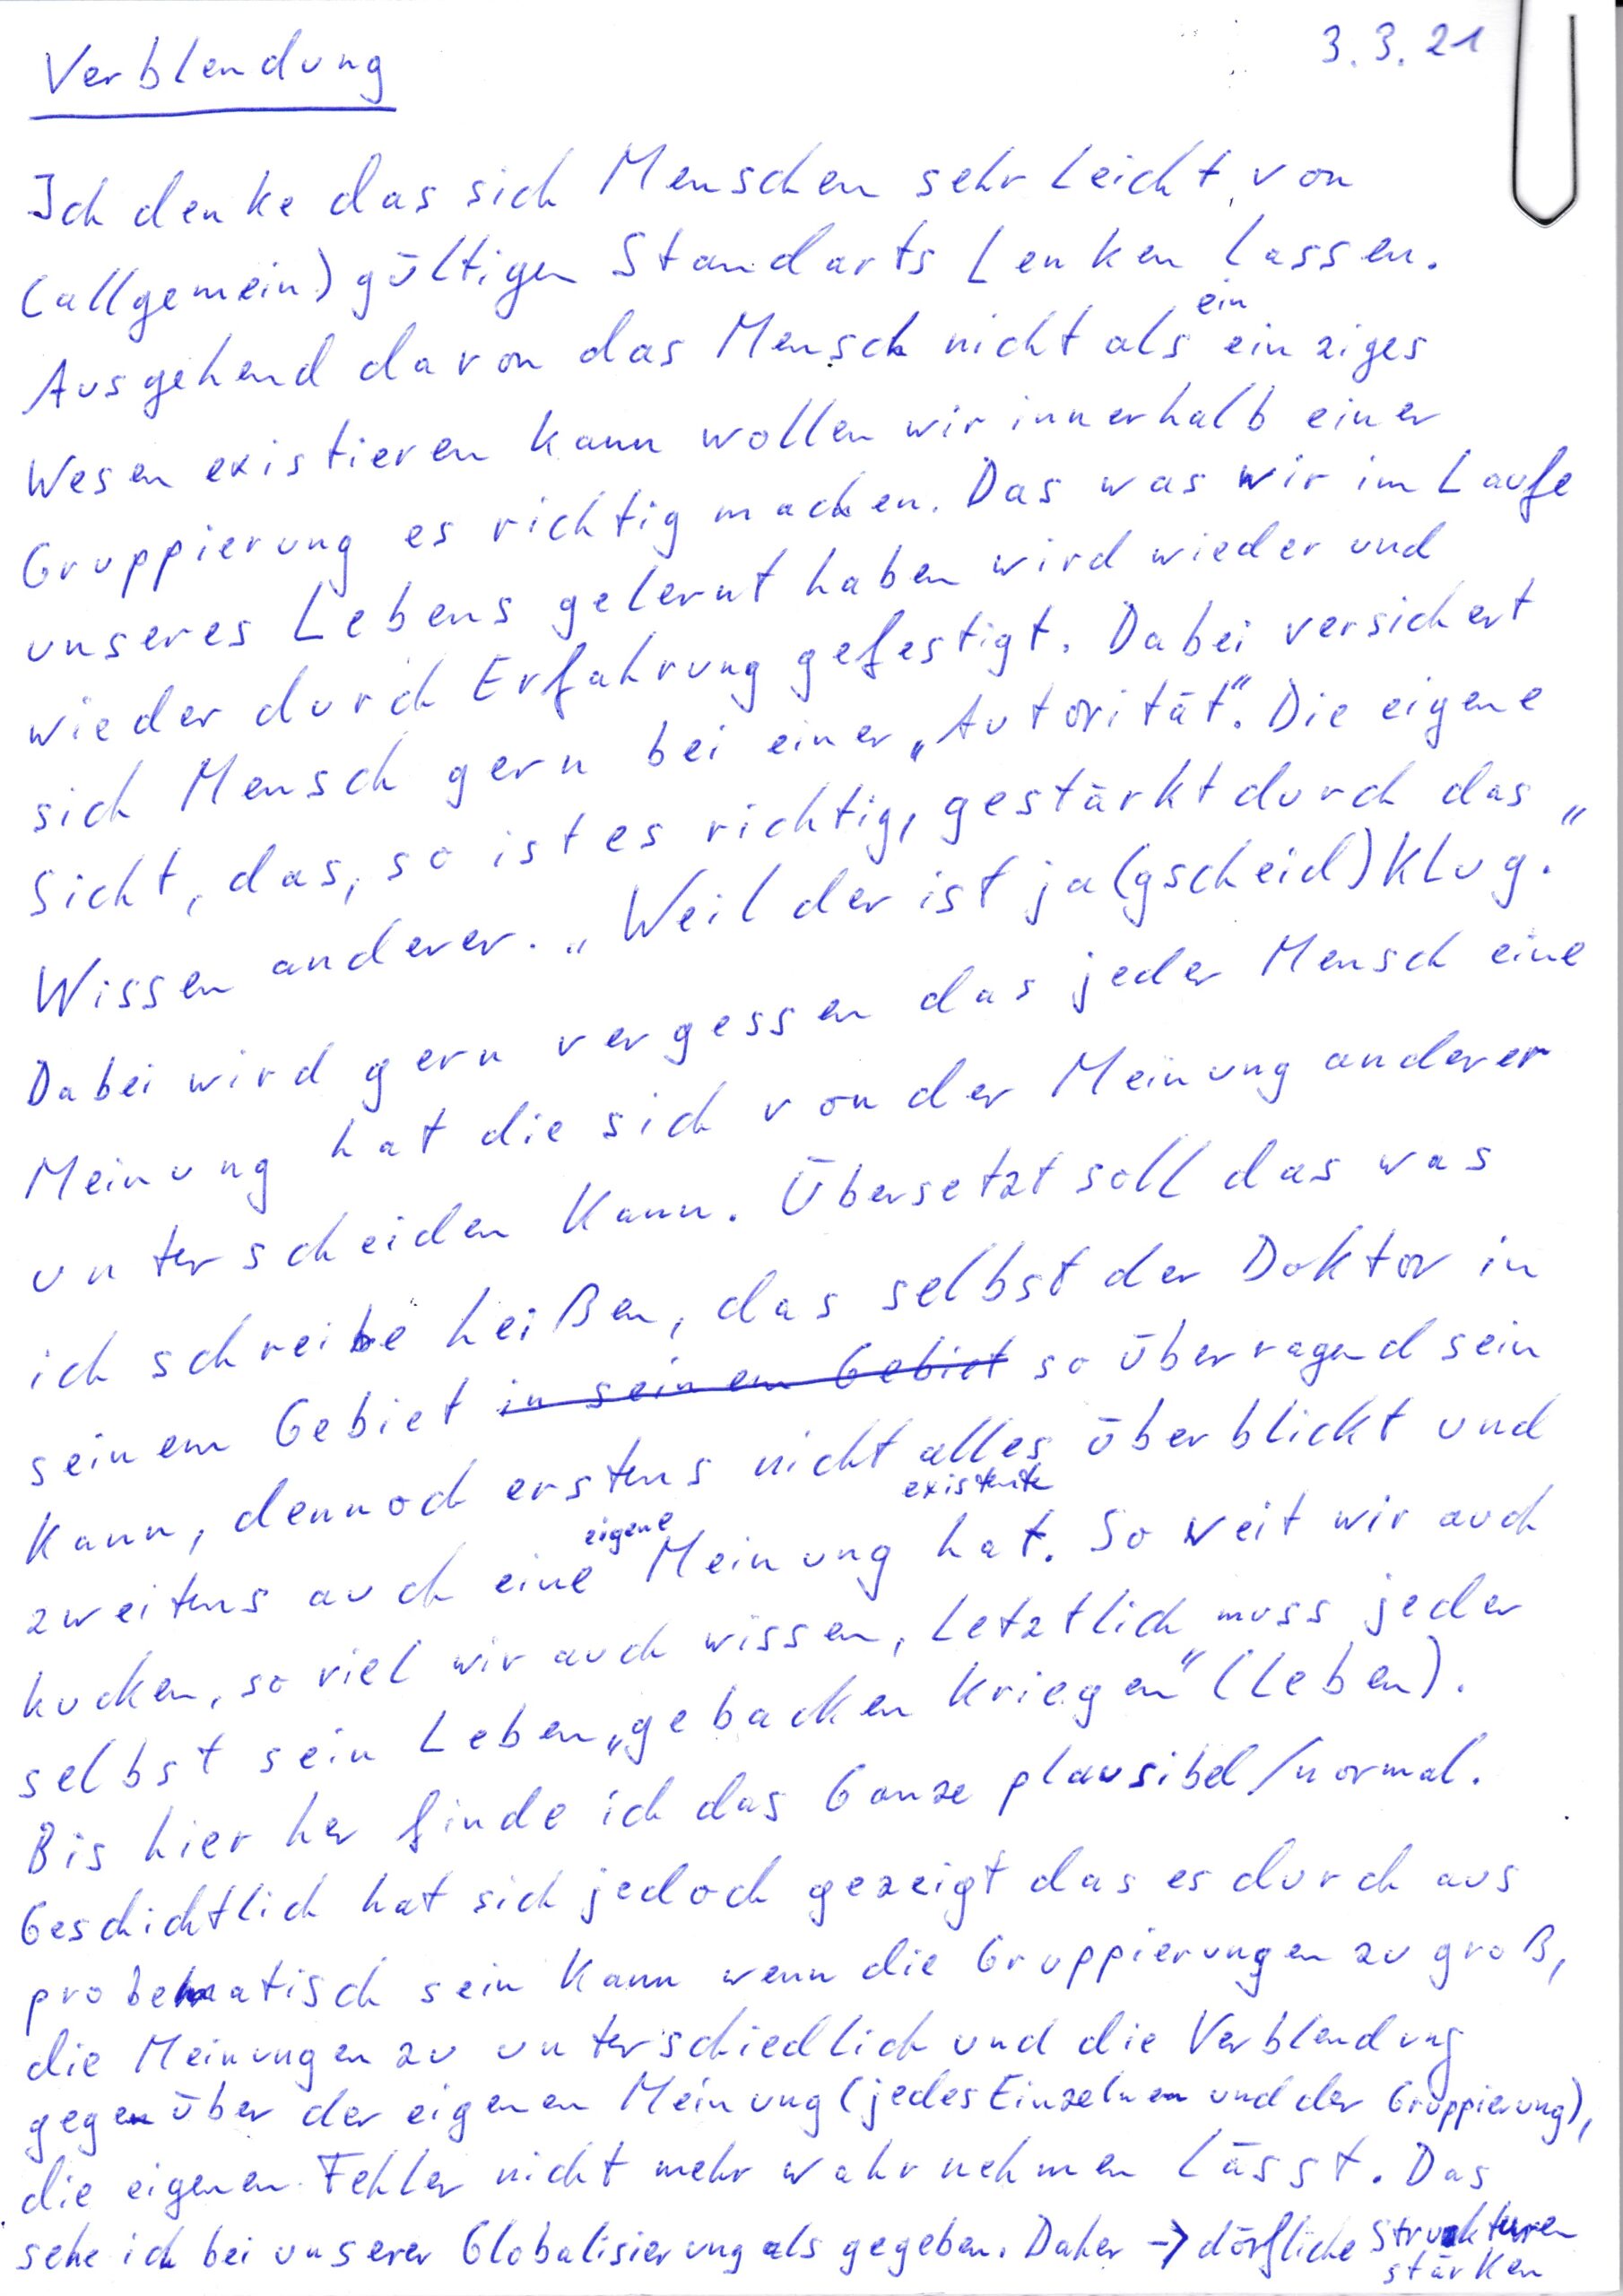 Verblendung
3.3.21
Ich denke das sich Menschen sehr leicht von
(allgemein) gültigen Standarts lenken lassen.
Ausgehend davon das Mensch nicht als ein einziges
Wesen existieren kann wollen wir innerhalb einer
Gruppierung es richtig machen. Das was wir im Laufe
unseres Lebens gelernt haben wird wieder und
wieder durch Erfahrung gefestigt. Dabei versichert
sich Mensch gern bei einer „Autorität". Die eigene
Sicht, das, so ist es richtig, gestärkt durch das
Wissen anderer. „Weil der ist ja (gscheid) klug."
Dabei wird gern vergessen das jeder Mensch eine
Meinung hat die sich von der Meinung anderer
unterscheiden kann. Übersetzt soll das was
ich schreibe heißen, das selbst der Doktor in
seinem Gebiet in seinem Gebiet so überragend sein
kann, dennoch erstens nicht alles existente überblickt und
zweitens auch eine eigene Meinung hat. So weit wir auch
kucken, so viel wir auch wissen, letztlich muss jeder
selbst sein Leben „gebacken kriegen" (leben).
Bis hier her finde ich das Ganze plausibel/normal.
Geschichtlich hat sich jedoch gezeigt das es durch aus
probematisch sein kann wenn die Gruppierungen zu groß,
die Meinungen zu unterschiedlich und die Verblendung
gegenüber der eigenen Meinung (jedes Einzelnen und der Gruppierung),
die eigenen Fehler nicht mehr wahrnehmen lässt. Das
sehe ich bei unserer Globalisierung als gegeben. Daher → dörfliche Strukturen
stärken